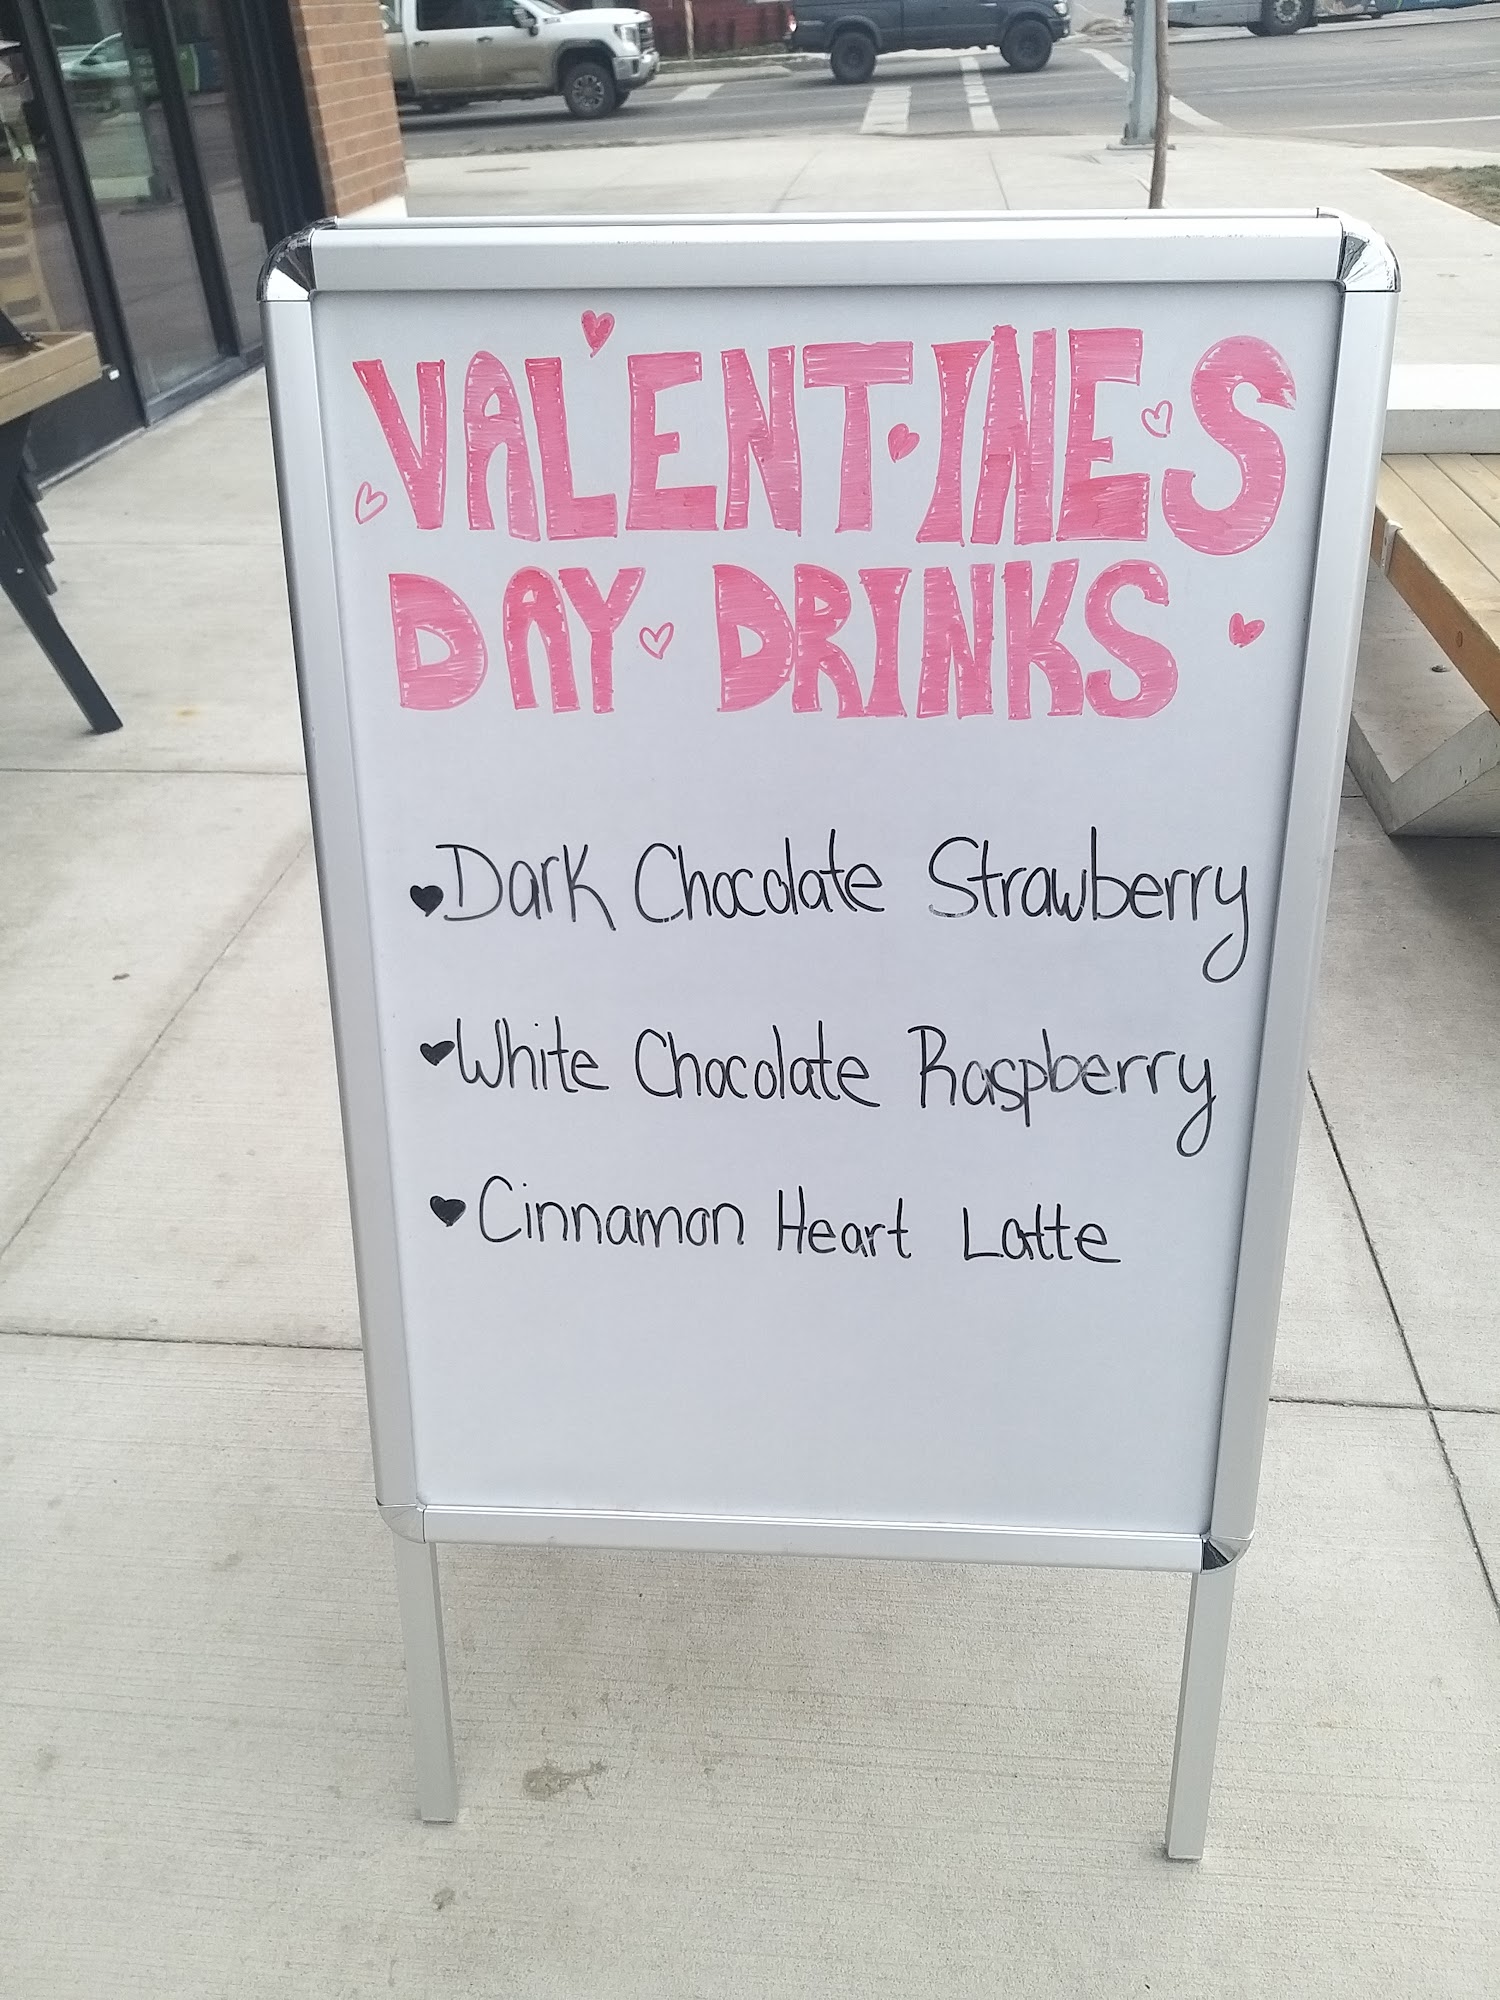 VALENTINES
DAY DRINKS
Dark Chocolate Strawberry
White Chocolate Raspberry
Cinnamon Heart Latte